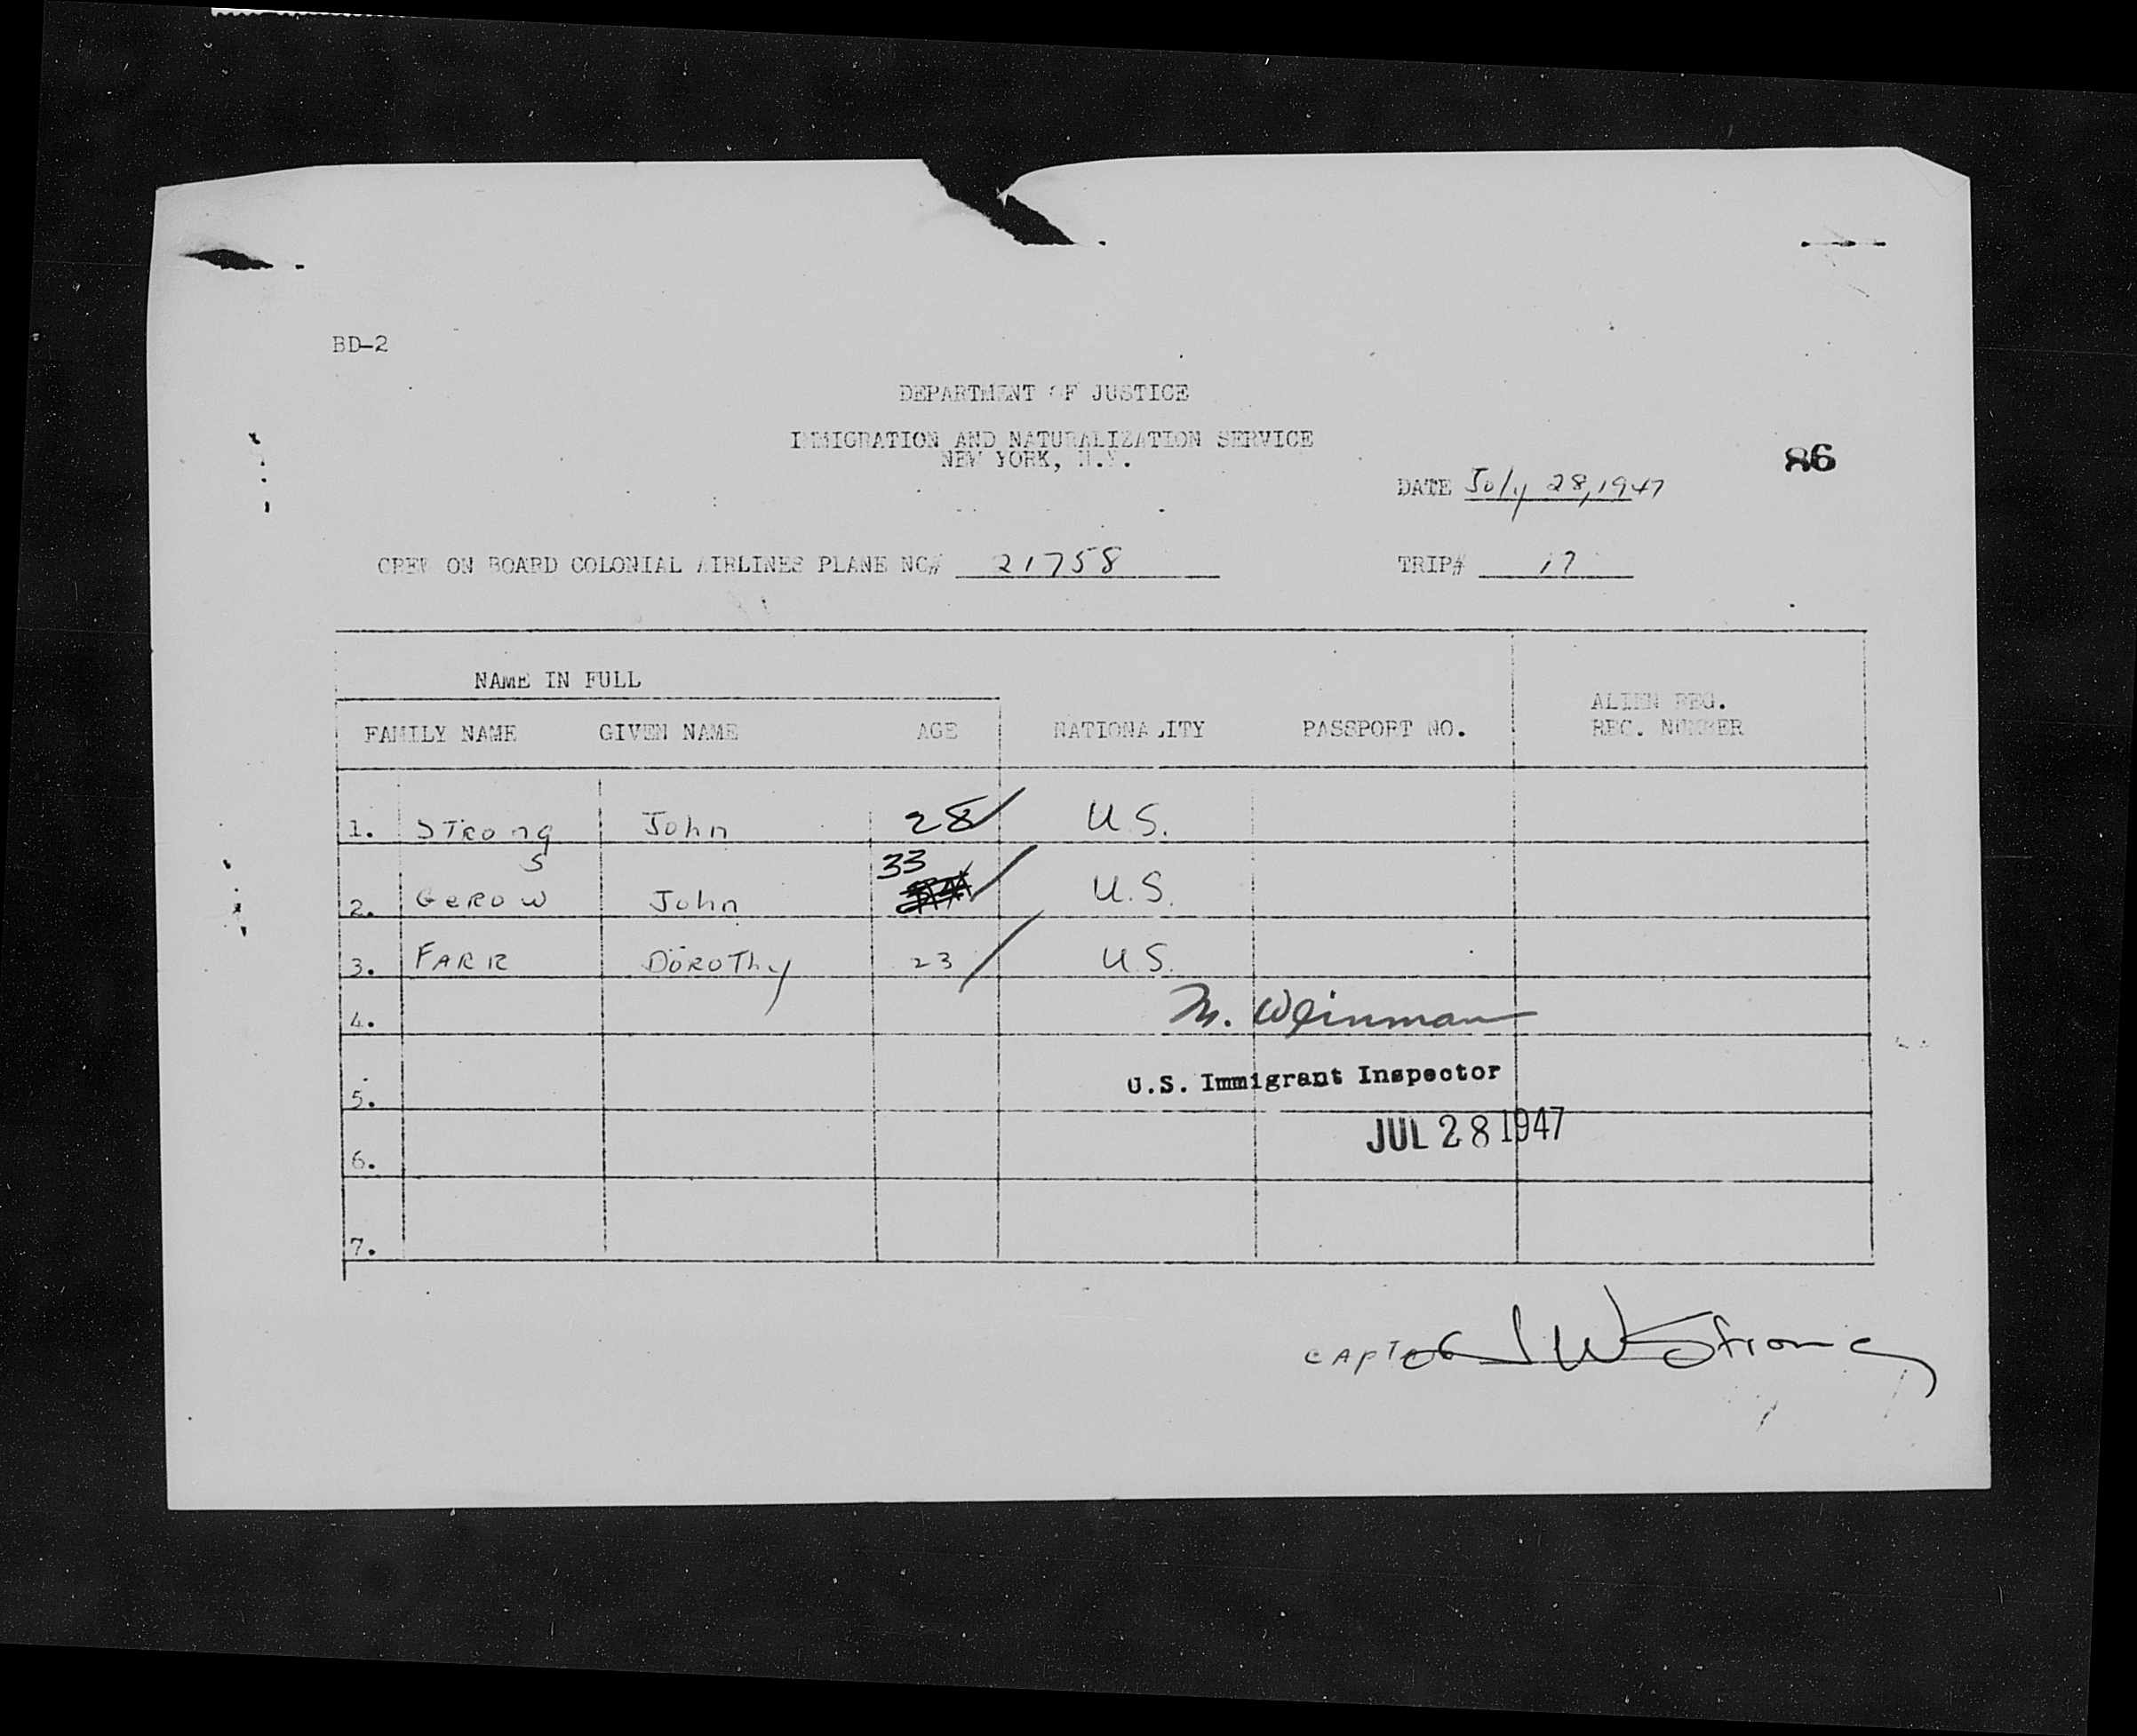 BD-2
DEPARTMENT OF JUSTICE
IMMIGRATION AND NATURALIZATION SERVICE
NEW YORK, N.Y.
86
DATE July 28, 1947
CREW ON BOARD COLONIAL AIRLINES PLANE NC# 21758 TRIP# 17
NAME IN FULL
FAMILY NAME GIVEN NAME AGE NATIONALITY PASSPORT NO. ALIEN REG. REC. NUMBER
1. STRong John 28 U.S.
S
33
2. GEROW John U.S.
3. FARR DOROThy 23 U.S.
4. M. Weinman
U.S. Immigrant Inspector
5.
JUL 28 1947
6.
7.
CAPT J W Strong